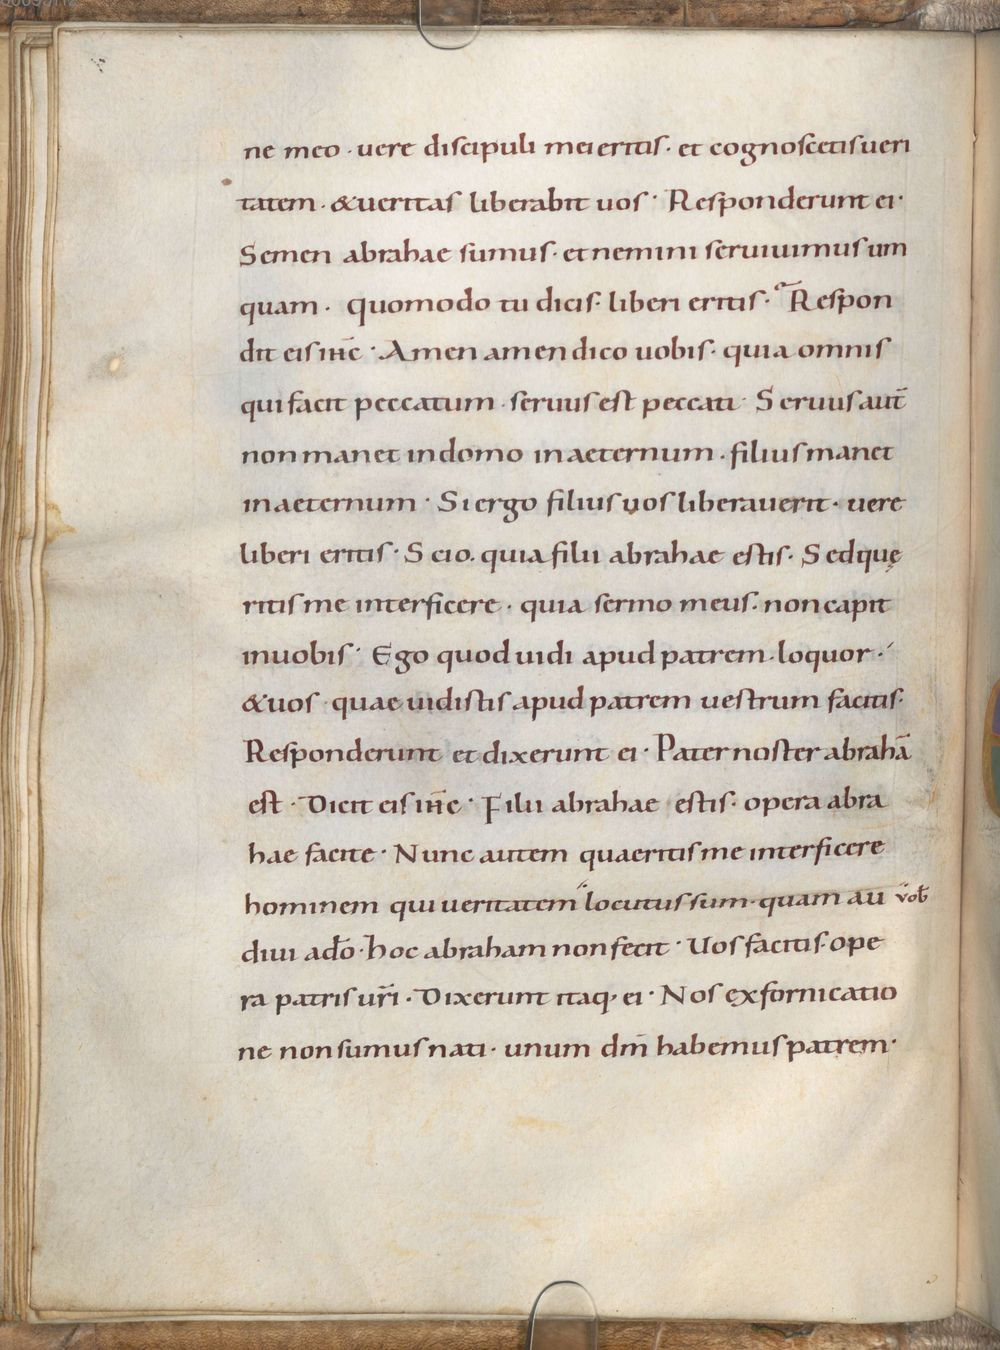 ne meo · uere discipuli mei eritis · et cognoscetis ueri
tatem · & ueritas liberabit uos · Responderunt ei ·
Semen abrahae sumus · et nemini seruiuimus um
quam · quomodo tu dicis · liberi eritis · Respon
dit eis ihc̄ · Amen amen dico uobis · quia omnis
qui facit peccatum · seruus est peccati · Seruus aut̄
non manet in domo in aeternum · filius manet
in aeternum · Si ergo filius uos liberauerit · uere
liberi eritis · Scio . quia filii abrahae estis · Sed quę
ritis me interficere · quia sermo meus · non capit
in uobis · Ego quod uidi apud patrem · loquor ·
& uos · quae uidistis apud patrem uestrum facitis ·
Responderunt et dixerunt ei · Pater noster abrahā
est · Dicit eis ihc̄ · Filii abrahae estis · opera abra
hae facite · Nunc autem quaeritis me interficere
hominem qui ueritatem locutus sum · quam au uob̄
diui a dō · hoc abraham non fecit · Uos facitis · ope
ra patris ur̄i · Dixerunt itaq; ei · Nos ex fornicatio
ne non sumus nati · unum dm̄ habemus patrem ·